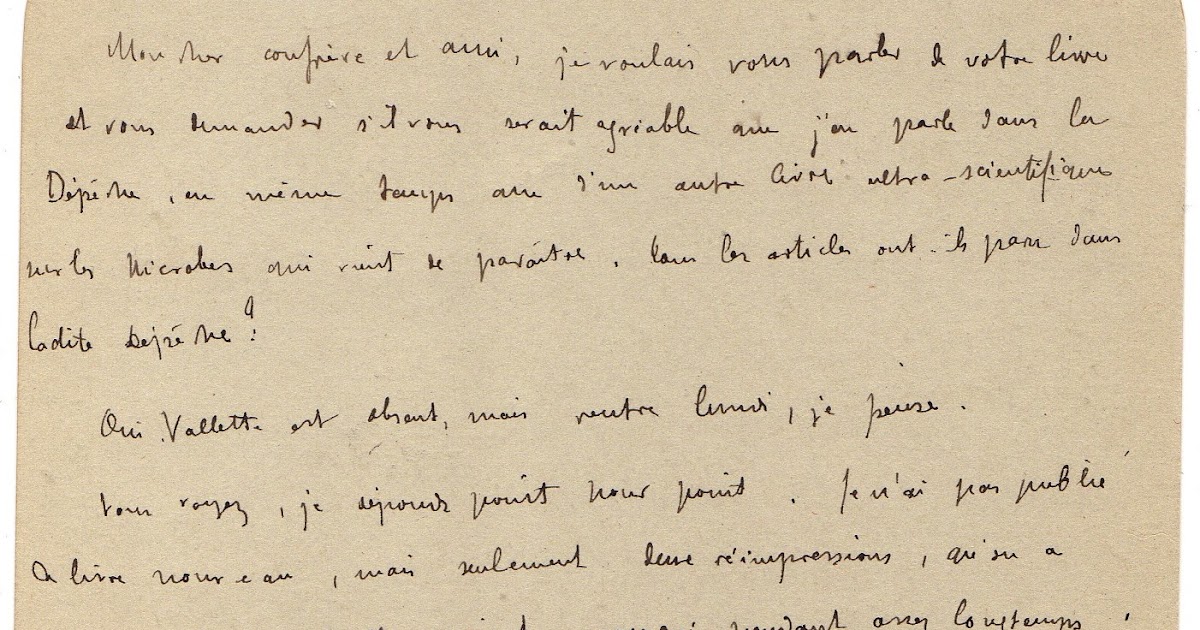 Mon cher confrère et ami, je voulais vous parler de votre livre
et vous demander s'il vous serait agréable que j'en parle dans la
Dépêche, en même temps que d'un autre livre ultra-scientifique
sur les Microbes qui vient de paraître. Tous les articles ont-ils paru dans
ladite Dépêche?
Oui Vallette est absent, mais rentre lundi, je pense.
Vous voyez, je réponds point pour point. Je n'ai pas publié
de livre nouveau, mais seulement deux réimpressions, qu'on a
pendant assez longtemps,